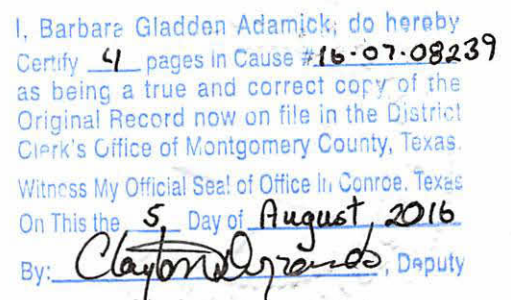 I, Barbara Gladden Adamick, do hereby
Certify 4 pages in Cause #16-07-08239
as being a true and correct copy of the
Original Record now on file in the District
Clerk's Office of Montgomery County, Texas.
Witness My Official Seal of Office In Conroe, Texas
On This the 5 Day of August, 2016
By: Clayton , Deputy